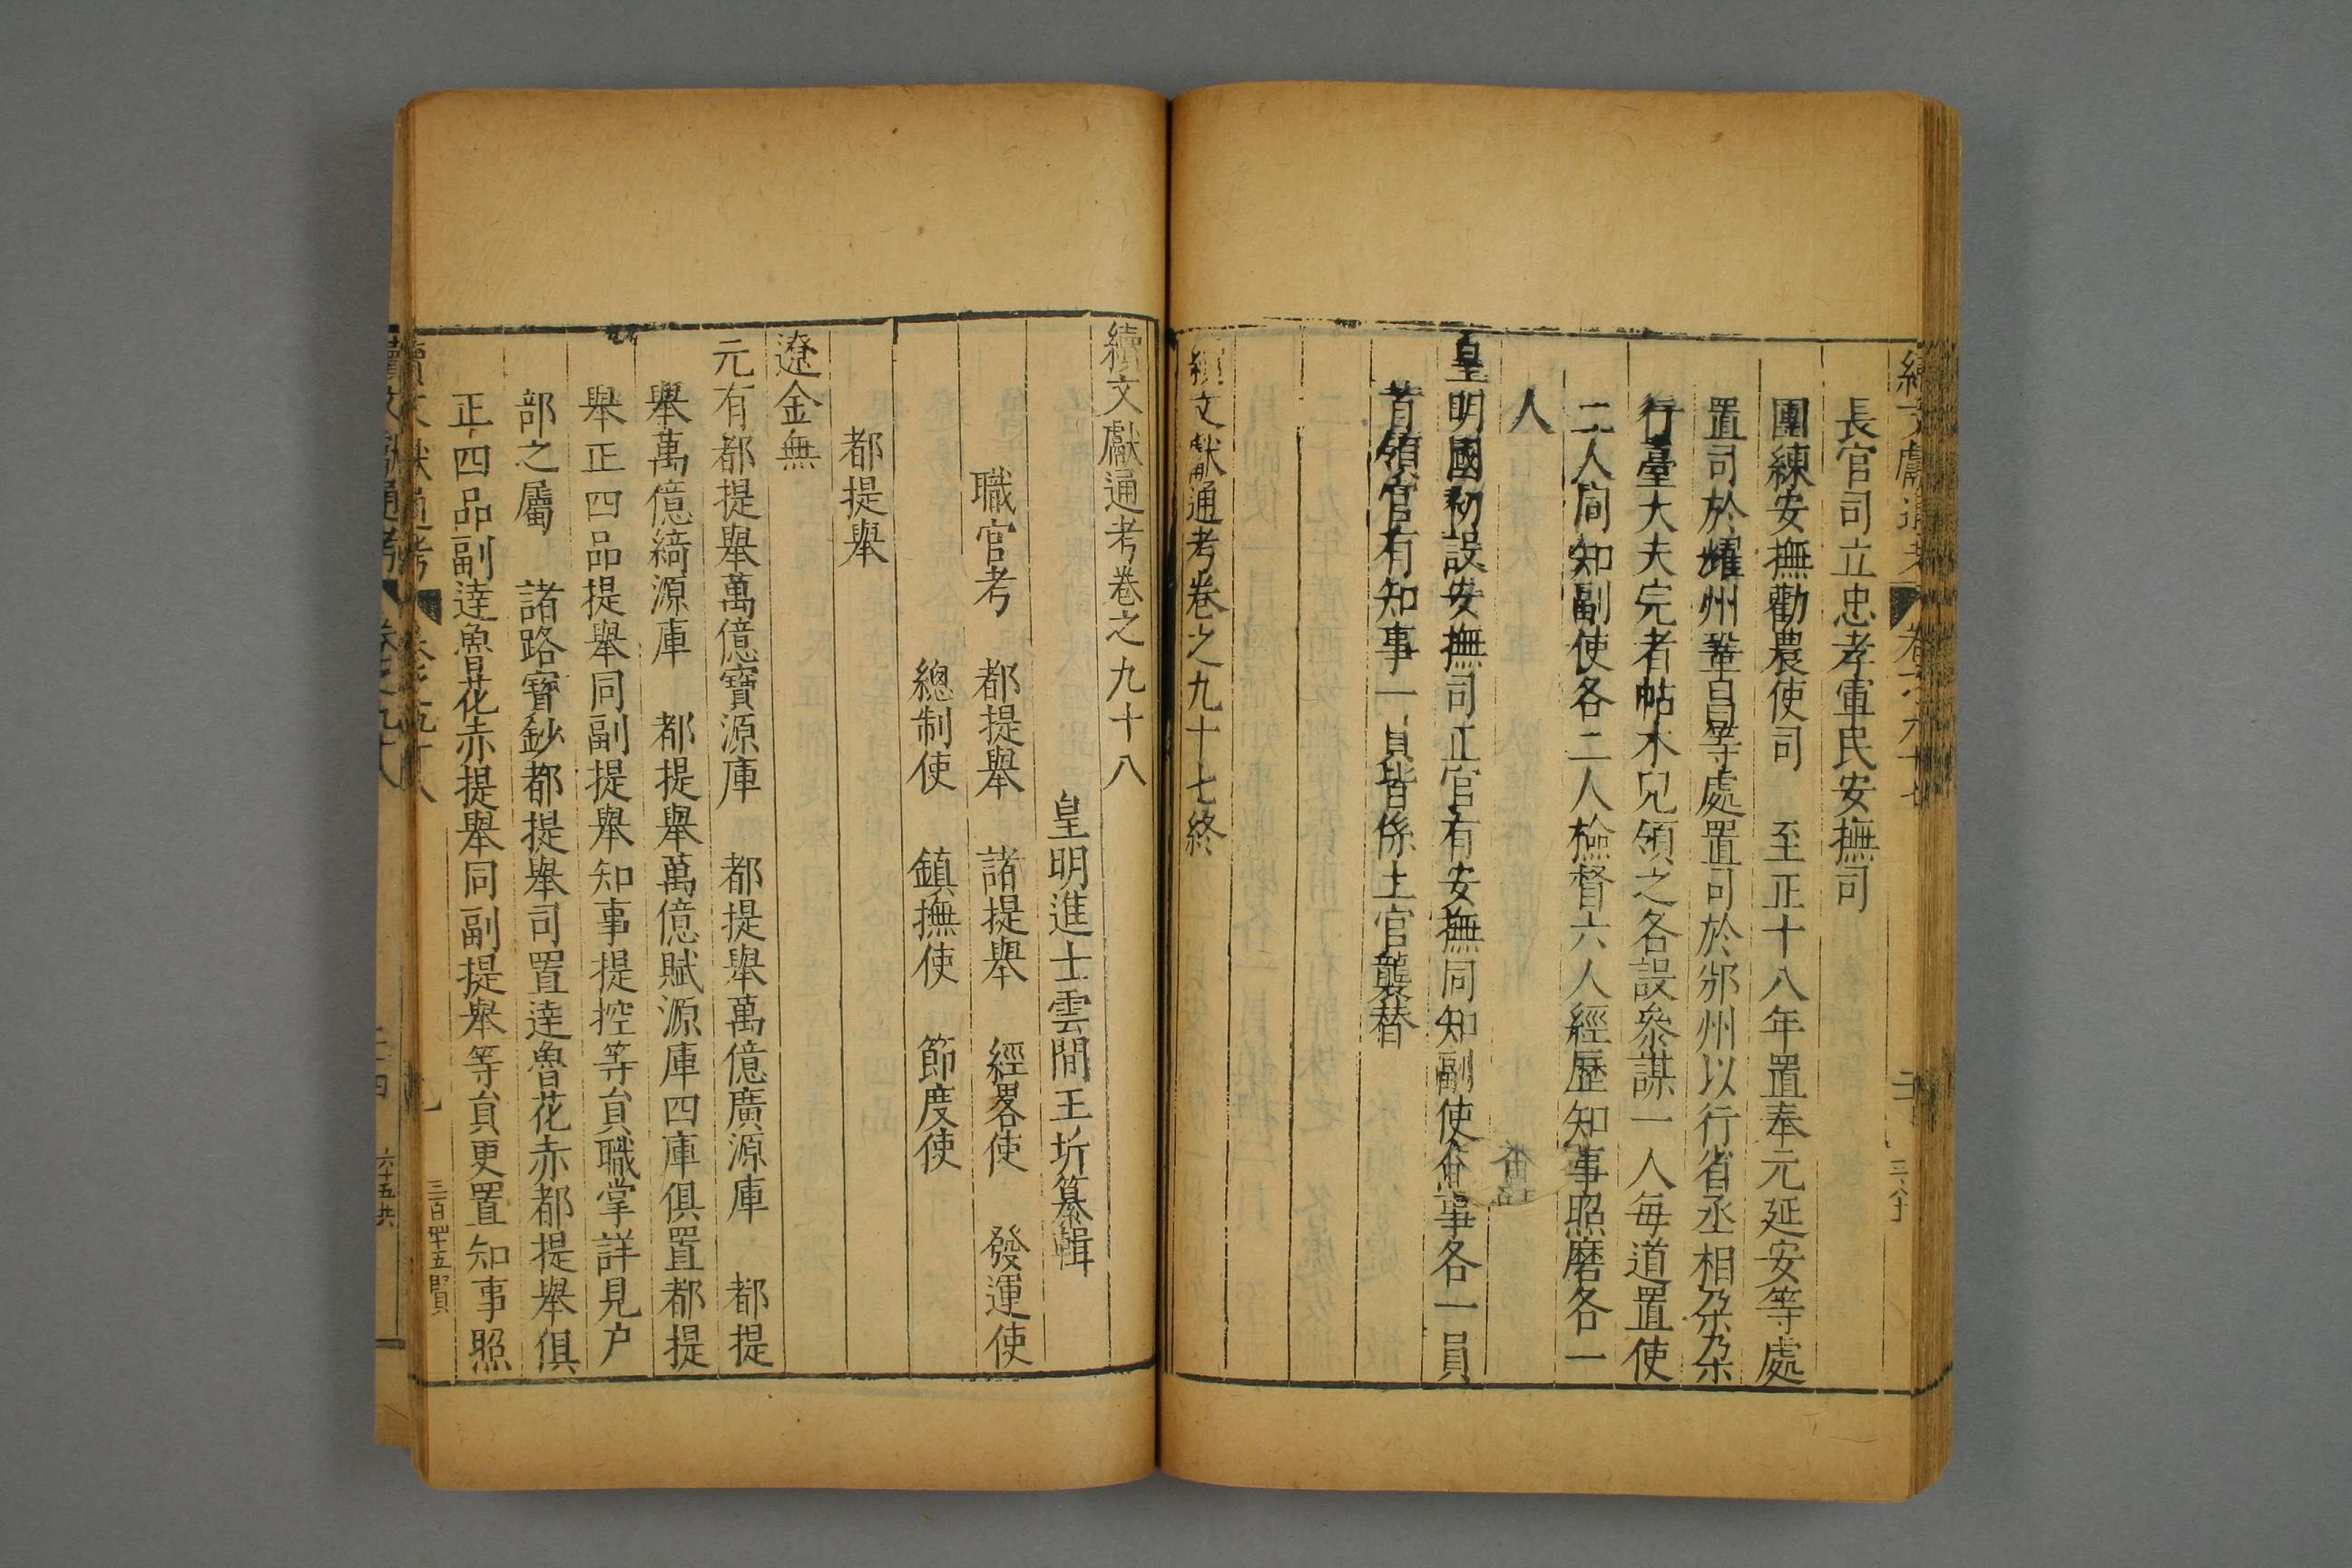 長官司立忠孝軍民安撫司
團練安撫勸農使司　至正十八年置奉元延安等處
置司於燿州鞏昌等處置司於邠州以行省丞相朶朶
行臺大夫完者帖木兒領之各設叅謀一人每道置使
二人同知副使各二人檢督六人經歷知事照磨各一
人
皇明國初設安撫司正官有安撫同知副使僉事各一員
首領官有知事一員皆係土官襲替
續文獻通考卷之九十七終
續文獻通考卷之九十八
皇明進士雲間王圻纂輯
職官考　都提舉　諸提舉　經畧使　發運使
總制使　鎮撫使　節度使
都提舉
遼金無
元有都提舉萬億寶源庫　都提舉萬億廣源庫　都提
舉萬億綺源庫　都提舉萬億賦源庫四庫俱置都提
舉正四品提舉同副提舉知事提控等員職掌詳見户
部之屬　諸路寶鈔都提舉司置達魯花赤都提舉俱
正四品副達魯花赤提舉同副提舉等員更置知事照